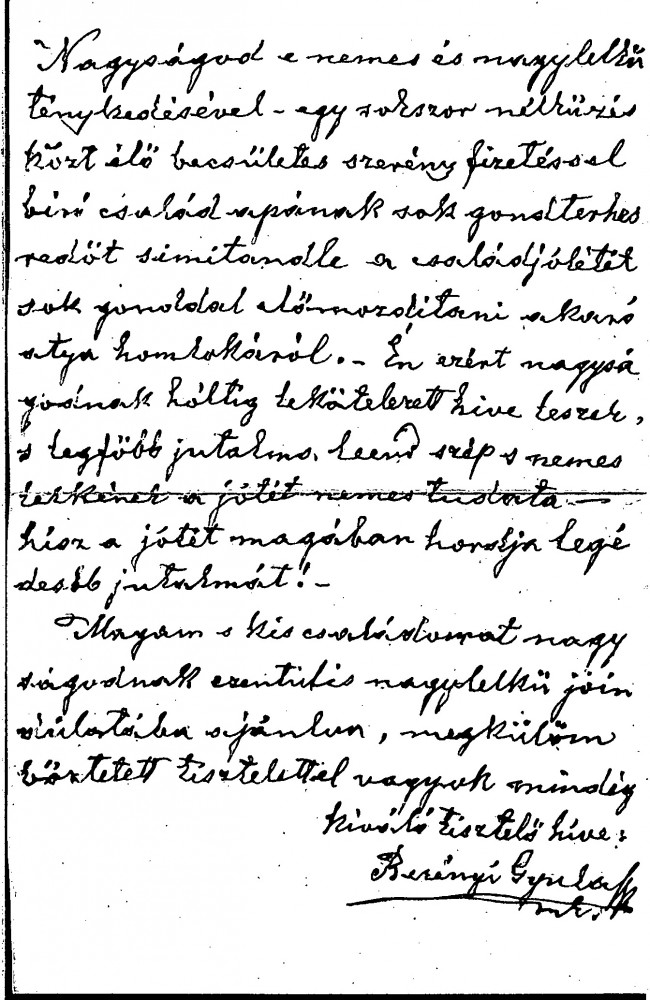 Nagyságod e nemes és nagylelkű
ténykedésével - egy sokszor nélküzés
közt élő becsületes szerény fizetéssel
biró család apának sok gondterhes
redőt simitandle a családjólétét
sok gonddal előmozditani akaró
atya homlokáról. - Én ezért nagysá
godnak hóltig lekötelezett hive leszek,
s legföbb jutalma leend szép s nemes
lelkének a jótét nemes tudata —
hisz a jótét magában hordja legé
desbb jutalmát! -
Magam s kis családomat nagy
ságodnak ezentúlis nagylelkü jóin
dúlatába ajánlva, megkülöm
böztetett tisztelettel vagyok mindég
kiváló tisztelő híve:
Berényi Gyula